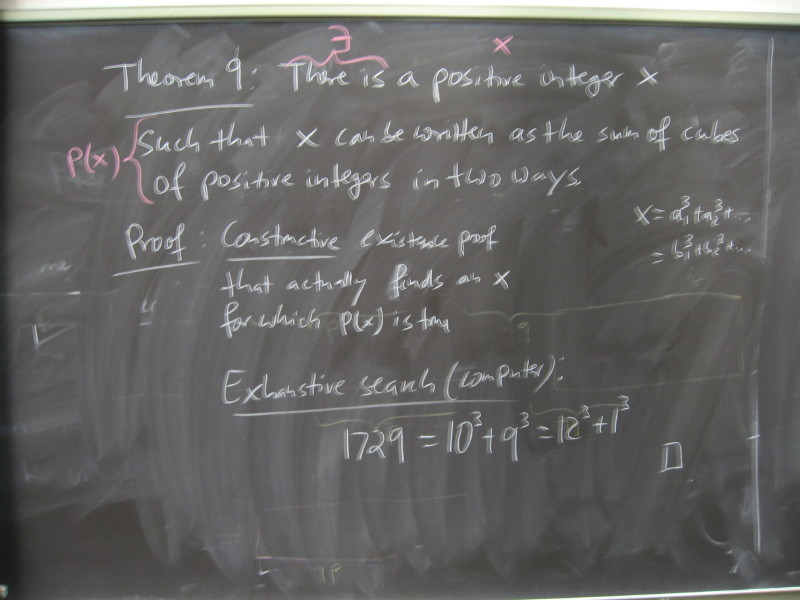 ∃ x
Theorem 9: There is a positive integer x
P(x) { Such that x can be written as the sum of cubes
of positive integers in two ways.
x = a₁³+a₂³+...
= b₁³+b₂³+...
Proof: Constructive existence proof
that actually finds an x
for which P(x) is true
Exhaustive search (computer):
1729 = 10³+9³ = 12³+1³
□